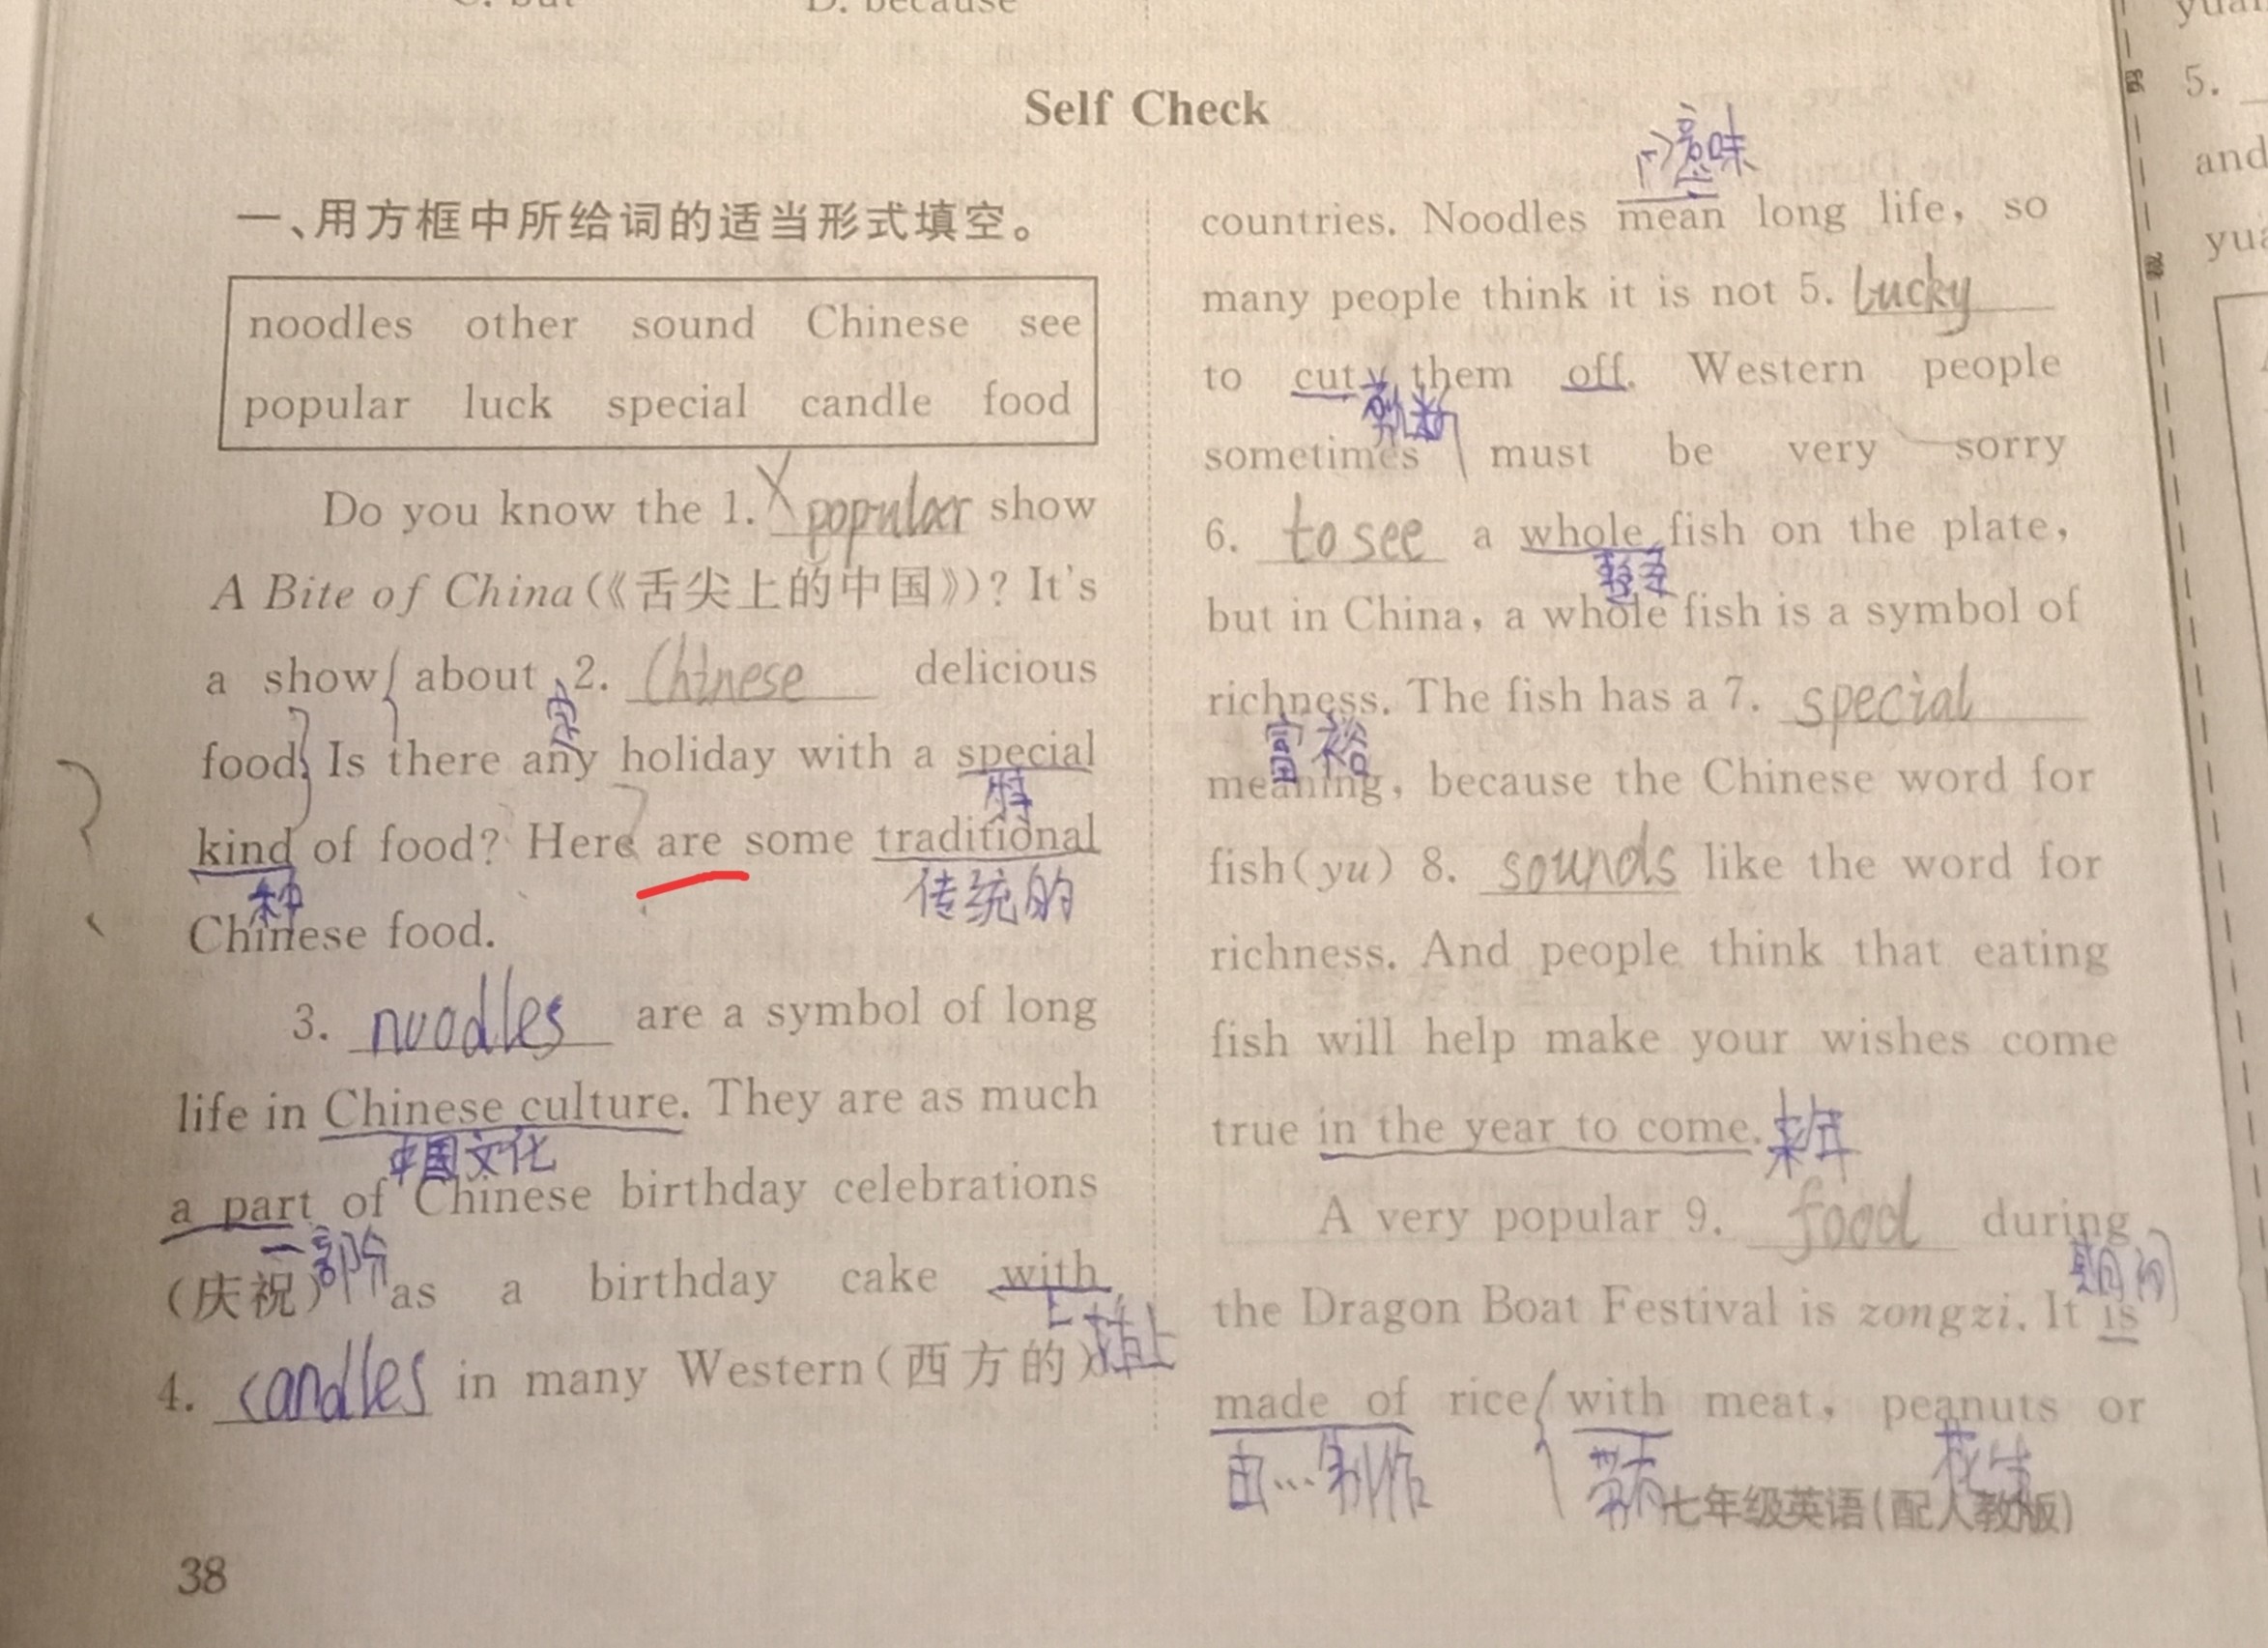 Self Check
一、用方框中所给词的适当形式填空。
noodles other sound Chinese see
popular luck special candle food
Do you know the 1. popular show
A Bite of China(《舌尖上的中国》)? It's
a show about 2. Chinese delicious
food. Is there any holiday with a special
kind of food? Here are some traditional
种
传统的
Chinese food.
3. noodles are a symbol of long
life in Chinese culture. They are as much
中国文化
a part of Chinese birthday celebrations
一部分
(庆祝) as a birthday cake with
4. candles in many Western(西方的)
38
意味
countries. Noodles mean long life, so
many people think it is not 5. lucky
to cut them off. Western people
sometimes must be very sorry
6. to see a whole fish on the plate,
but in China, a whole fish is a symbol of
richness. The fish has a 7. special
富裕
meaning, because the Chinese word for
fish(yu) 8. sounds like the word for
richness. And people think that eating
fish will help make your wishes come
true in the year to come. 来年
A very popular 9. food during
期间
the Dragon Boat Festival is zongzi. It is
made of rice with meat, peanuts or
由…制作
花生
七年级英语(配人教版)
5.
and